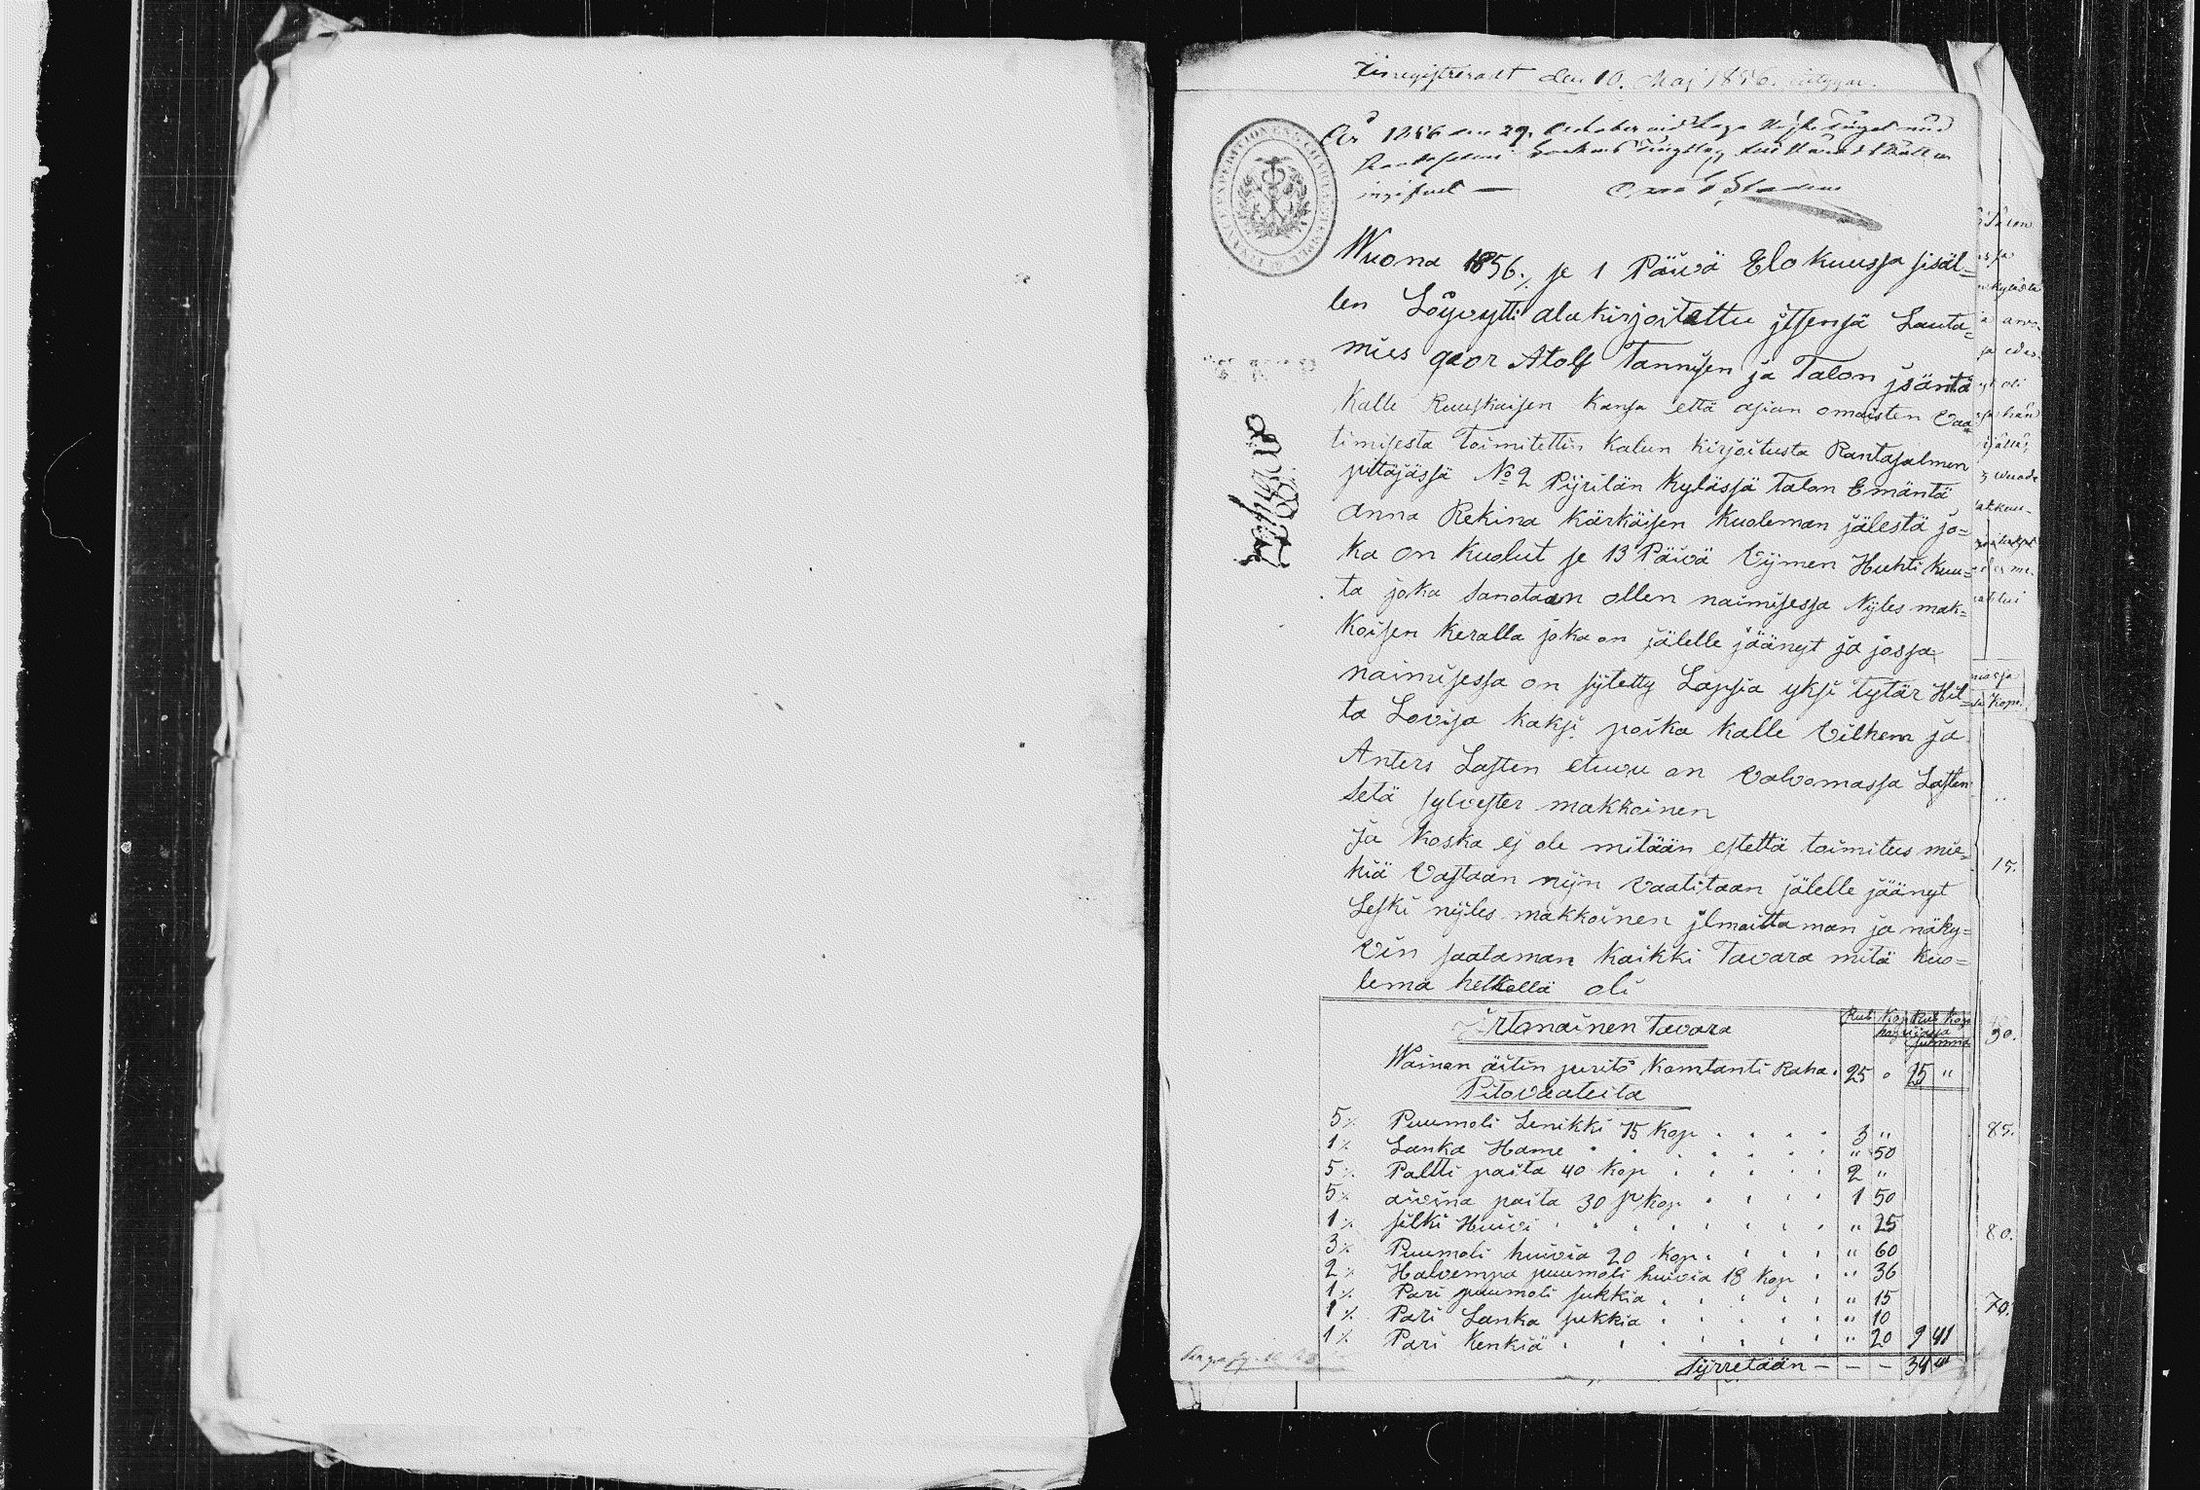 den 10. Maj 1856.
År 1856 den 29. October vid Laga
ingifvet —
Wuona 1856, se 1 Päivä Elo kuussa sisäl=
len Löyvytti ala kirjoitettu itsensä Lauta=
mies geor Atolf Tannisen ja Talon isäntä
Kalle Ruuskaisen kansa että asian omaisten vaa
timisesta Toimitettin Kalun kirjoitusta Rantasalmen
pittäjässä No 2 Pijrilän kylässä Talon Emäntä
Anna Rekina Kärkäisen Kuoleman jälestä jo=
ka on Kuolut se 13 Päivä Vijmen Huhti kuu=
ta joka sanotaan ollen naimisessa Nijles mak=
koisen keralla joka on jälelle jäänyt ja jossa
naimisessa on sijtetty Lapsia yksi tytär Hil=
ta Lovisa kaksi poika Kalle Vilhem ja
Anters Lasten etuvu on valvomassa Lasten
Setä sylvester makkoinen
Ja koska ej ole mitään estettä toimitus mie=
hiä Vastaan nijn vaatitaan jälelle jäänyt
Leski nijles makkoinen ilmoittaman ja näky=
Vin saataman kaikki Tavara mitä kuo=
lema hetkellä oli
Irtonainen Tavara
Rub Kop Rub Kop
Wainan äitin perito Komtanti Raha . 25 " 25 "
Pitovaateita
5 % Puumoli Lenikki 75 Kop . . . . 3 "
1 % Lanka Hame . . . . " 50
5 % Paltti paita 40 Kop . . . . 2 "
5 % aivina paita 30 Kop . . . . 1 50
1 % silki Huivi . . . . " 25
3 % Puumoli huivia 20 Kop . . . . " 60
2 % Halvempa puumoli huivia 18 Kop . " 36
1 % Pari puumoli sukkia . . . . " 15
1 % Pari Lanka sukkia . . . . " 10
1 % Pari Kenkiä . . . . " 20 9 41
Sijrretään — — — 34 41
15.
30.
85.
80.
70.